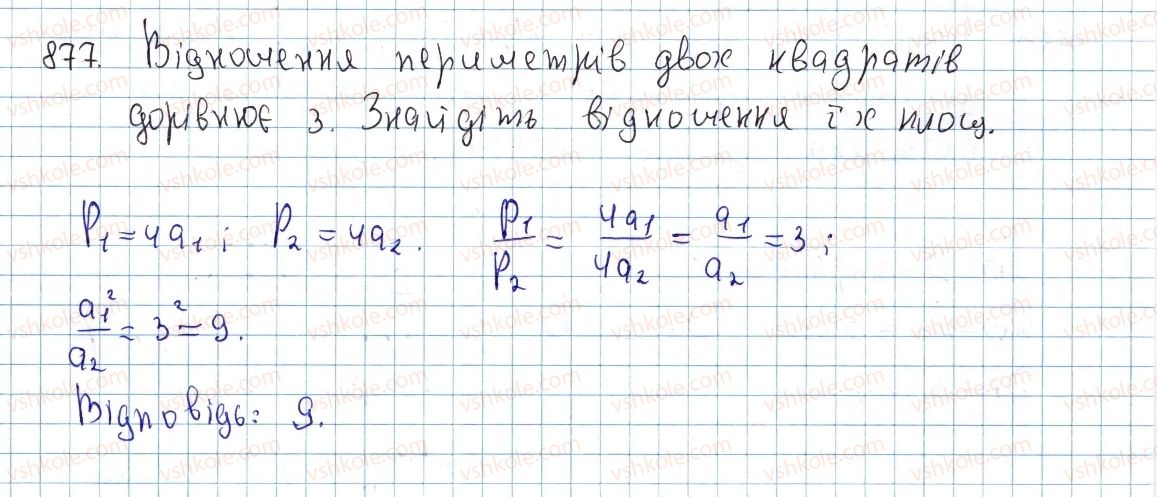 877. Відношення периметрів двох квадратів
дорівнює 3. Знайдіть відношення їх площ.
P₁ = 4a₁; P₂ = 4a₂. P₁/P₂ = 4a₁/4a₂ = a₁/a₂ = 3;
a₁²/a₂ = 3² = 9.
Відповідь: 9.